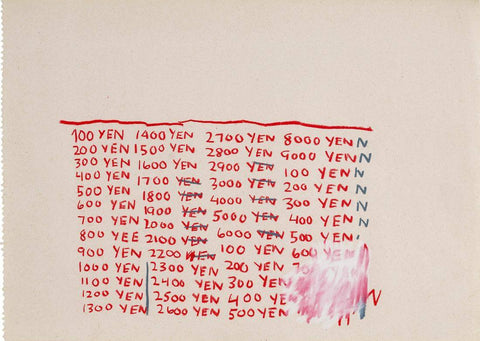 100 YEN
200 YEN
300 YEN
400 YEN
500 YEN
600 YEN
700 YEN
800 YEE
900 YEN
1000 YEN
1100 YEN
1200 YEN
1300 YEN
1400 YEN
1500 YEN
1600 YEN
1700 YEN
1800 YEN
1900 YEN
2000 YEN
2100 YEN
2200 YEN
2300 YEN
2400 YEN
2500 YEN
2600 YEN
2700 YEN
2800 YEN
2900 YEN
3000 YEN
4000 YEN
5000 YEN
6000 YEN
100 YEN
200 YEN
300 YEN
400 YEN
500 YEN
8000 YEN N
9000 YEN N
100 YEN N
200 YEN N
300 YEN N
400 YEN N
500 YEN
600 YEN